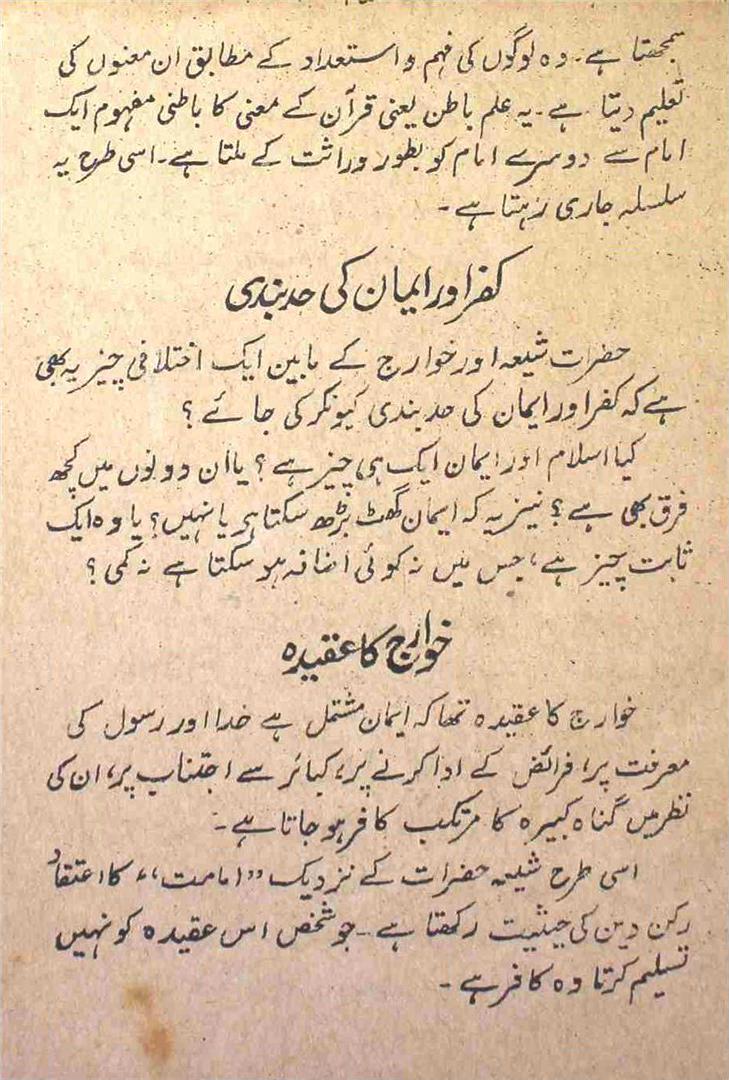 سمجھتا ہے۔ وہ لوگوں کی فہم و استعداد کے مطابق ان معنوں کی
تعلیم دیتا ہے۔ یہ علم باطن یعنی قرآن کے معنی کا باطنی مفہوم ایک
امام سے دوسرے امام کو بطور وراثت کے ملتا ہے۔ اسی طرح یہ
سلسلہ جاری رہتا ہے۔
کفر اور ایمان کی حد بندی
حضرات شیعہ اور خوارج کے مابین ایک اختلافی چیز یہ بھی
ہے کہ کفر اور ایمان کی حد بندی کیونکر کی جائے؟
کیا اسلام اور ایمان ایک ہی چیز ہے؟ یا ان دونوں میں کچھ
فرق بھی ہے؟ نیز یہ کہ ایمان گھٹ بڑھ سکتا ہے یا نہیں؟ یا وہ ایک
ثابت چیز ہے، جس میں نہ کوئی اضافہ ہو سکتا ہے نہ کمی؟
خوارج کا عقیدہ
خوارج کا عقیدہ تھا کہ ایمان مشتمل ہے خدا اور رسول کی
معرفت پر، فرائض کے ادا کرنے پر، کبائر سے اجتناب پر، ان کی
نظر میں گناہ کبیرہ کا مرتکب کافر ہو جاتا ہے۔
اسی طرح شیعہ حضرات کے نزدیک "امامت" کا اعتقاد
رکن دین کی حیثیت رکھتا ہے۔ جو شخص اس عقیدہ کو نہیں
تسلیم کرتا وہ کافر ہے۔